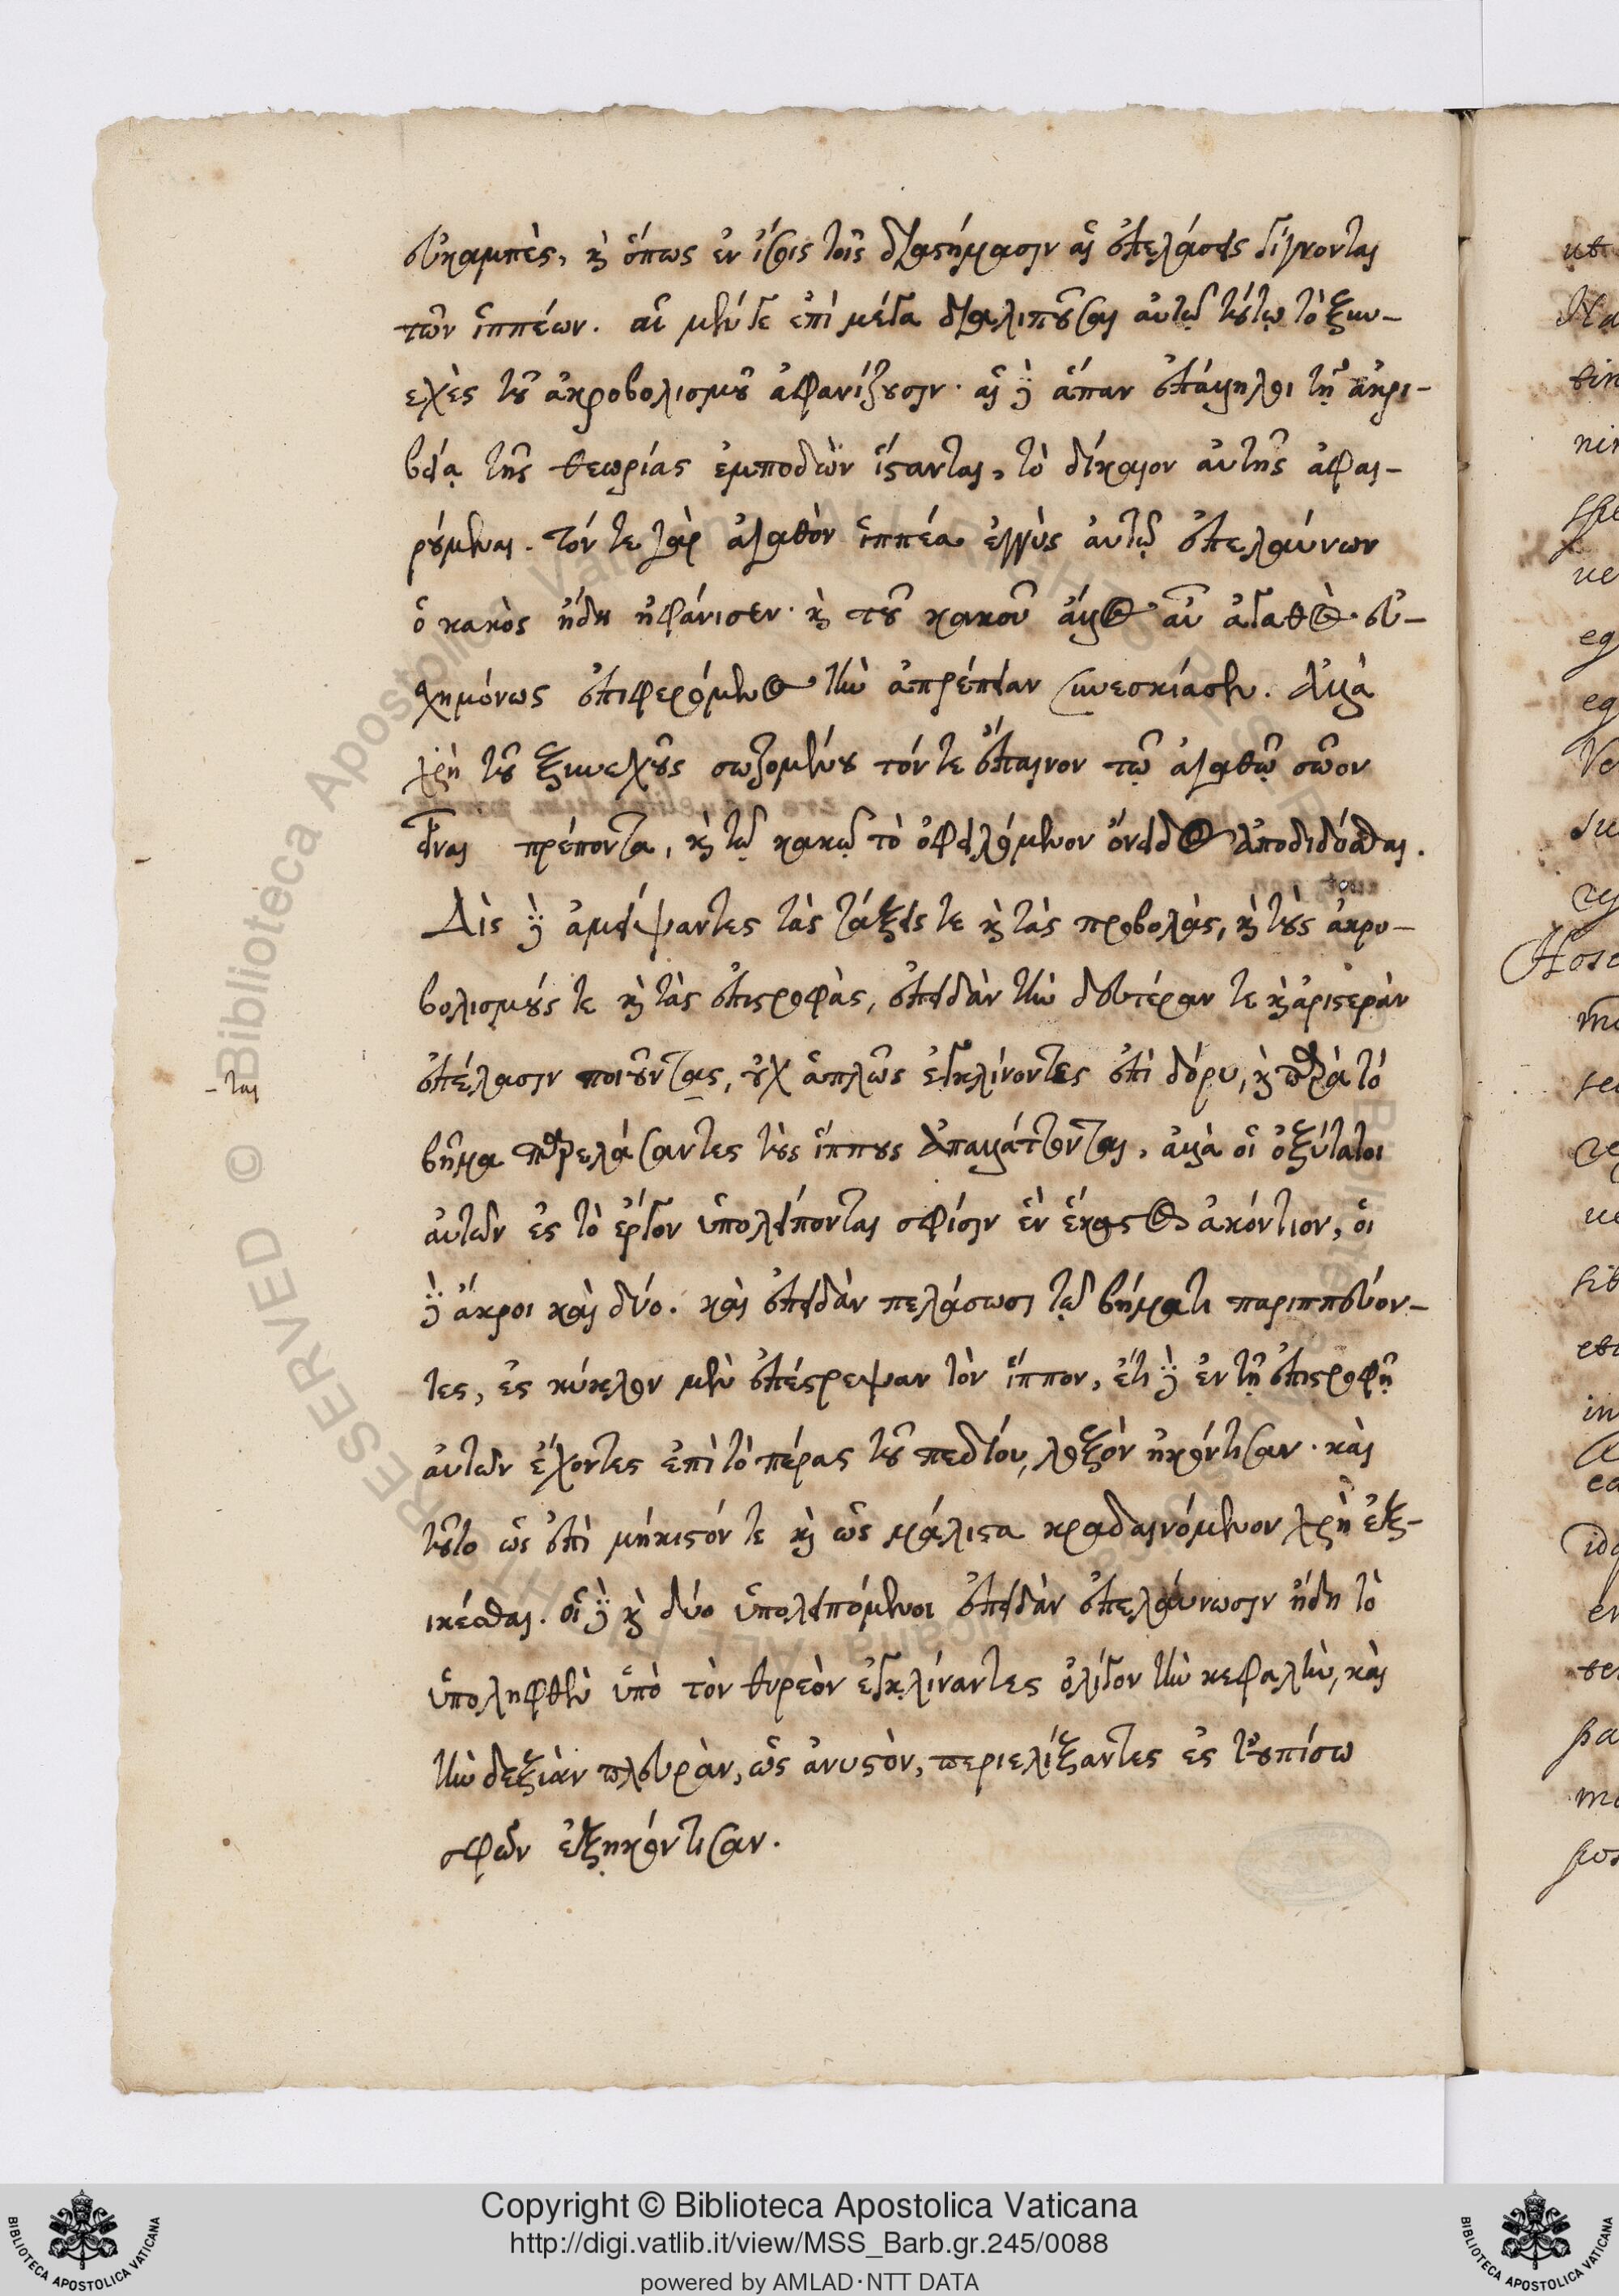 εὐκαμπὲς, κὶ ὅπως ἐν ἴσοις τοῖς διαστήμασιν αἱ ἐπελάσεις γίγνονται
τῶν ἱππέων. αἱ μέν γε ἐπὶ μέγα διαλιποῦσαι αὐτῷ τούτῳ τὸ ξυν-
εχὲς τοῦ ἀκροβολισμοῦ ἀφανίζουσιν· αἱ δὲ ἅπαν ἐπάλληλοι τῇ ἀκρι-
βείᾳ τῆς θεωρίας ἐμποδὼν ἵστανται, τὸ δίκαιον αὐτῆς ἀφαι-
ρούμεναι. τόν τε γὰρ ἀγαθὸν ἱππέα ἐγγὺς αὐτῷ ἐπελαύνων
ὁ κακὸς ἤδη ἠφάνισεν· κὶ τοῦ κακοῦ ἄλλος αὖ ἀγαθὸς εὐ-
σχημόνως ἐπιφερόμενος τὴν ἀπρέπειαν συνεσκίασεν. ἀλλὰ
χρὴ τοῦ ξυνεχοῦς σωζομένου τόν τε ἔπαινον τῷ ἀγαθῷ σῶον
εἶναι πρέποντα, κὶ τῷ κακῷ τὸ ὀφειλόμενον ὄνειδος ἀποδιδόσθαι.
Δὶς δὲ ἀμείψαντες τὰς τάξεις τε κὶ τὰς προβολὰς, κὶ τοὺς ἀκρο-
βολισμούς τε κὶ τὰς ἐπιστροφὰς, ἐπειδὰν τὴν δευτέραν τε κὶ ἀριστερὰν
ἐπέλασιν ποιοῦντας, οὐχ ἁπλῶς ἐγκλίνοντες ἐπὶ δόρυ, κὶ παρὰ τὸ
-ται
βῆμα παρελάσαντες τοὺς ἵππους ἀπαλλάττονται, ἀλλὰ οἱ ὀξύτατοι
αὐτῶν ἐς τὸ ἔργον ὑπολείπονται σφίσιν ἓν ἕκαστος ἀκόντιον, οἱ
δὲ ἄκροι καὶ δύο. καὶ ἐπειδὰν πελάσωσι τῷ βήματι παριππεύον-
τες, ἐς κύκλον μὲν ἐπέστρεψαν τὸν ἵππον, ἔτι δὲ ἐν τῇ ἐπιστροφῇ
αὐτῶν ἔχοντες ἐπὶ τὸ πέρας τοῦ πεδίου, λοξὸν ἠκόντισαν· καὶ
τοῦτο ὡς ἐπὶ μήκιστόν τε κὶ ὡς μάλιστα κραδαινόμενον χρὴ ἐξ-
ικέσθαι. οἱ δὲ κὶ δύο ὑπολειπόμενοι ἐπειδὰν ἐπελαύνωσιν ἤδη τὸ
ὑποληφθὲν ὑπὸ τὸν θυρεὸν ἐγκλίναντες ὀλίγον τὴν κεφαλὴν, καὶ
τὴν δεξιὰν πλευρὰν, ὡς ἀνυστὸν, περιελίξαντες ἐς τοὐπίσω
σφῶν ἐξηκόντισαν.
Copyright © Biblioteca Apostolica Vaticana
http://digi.vatlib.it/view/MSS_Barb.gr.245/0088
powered by AMLAD·NTT DATA